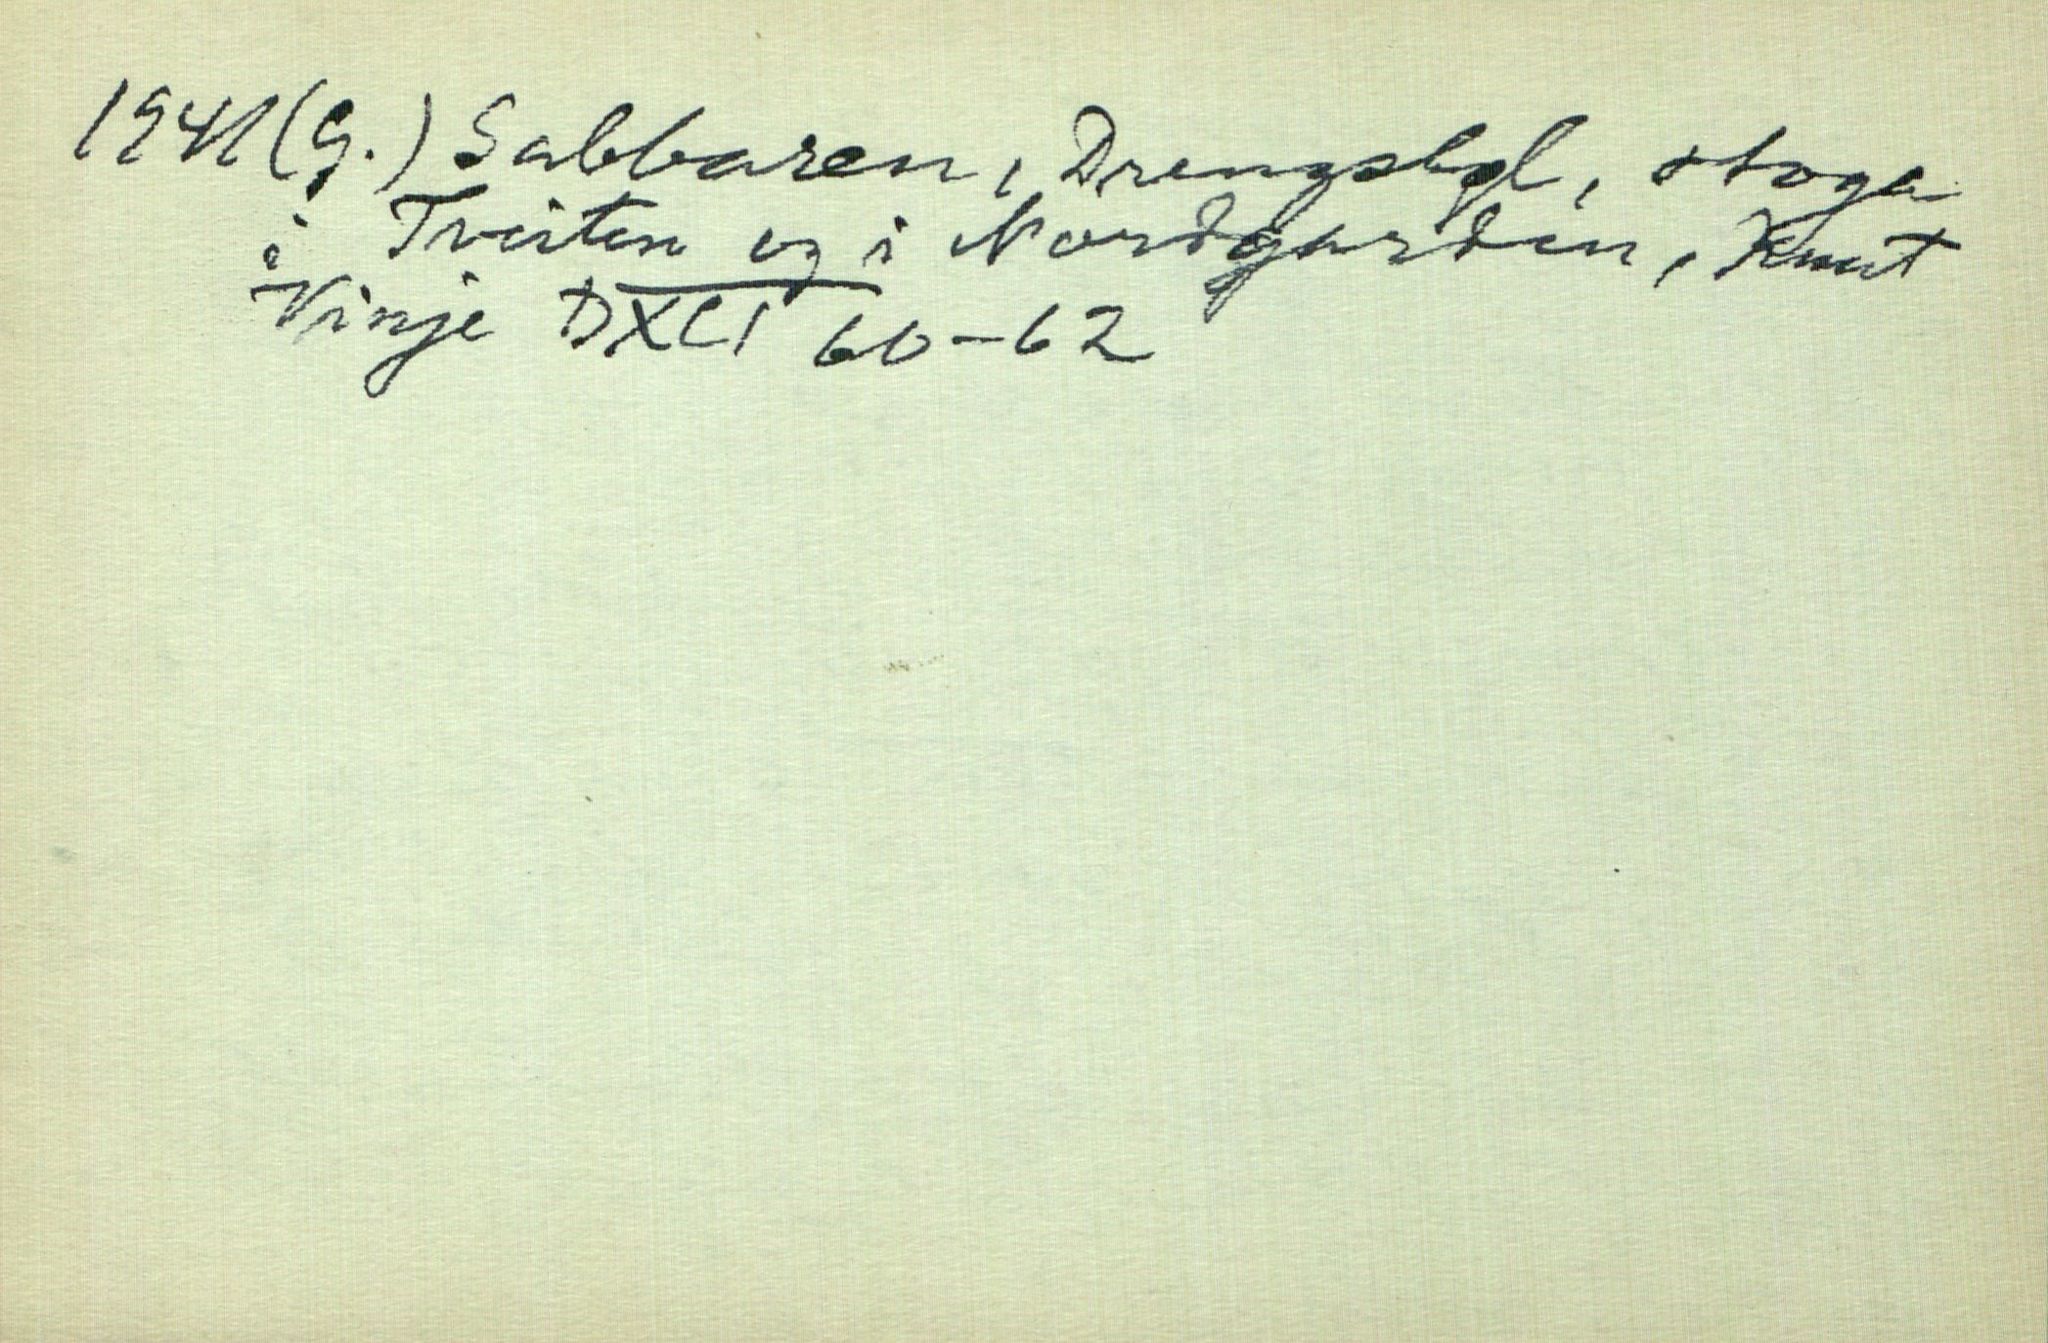 1941 (G.) Sabbaren, Drengskgl, stoga
i Tveiten og i Nordgarden, Knut
Vinje DXCI 60-62